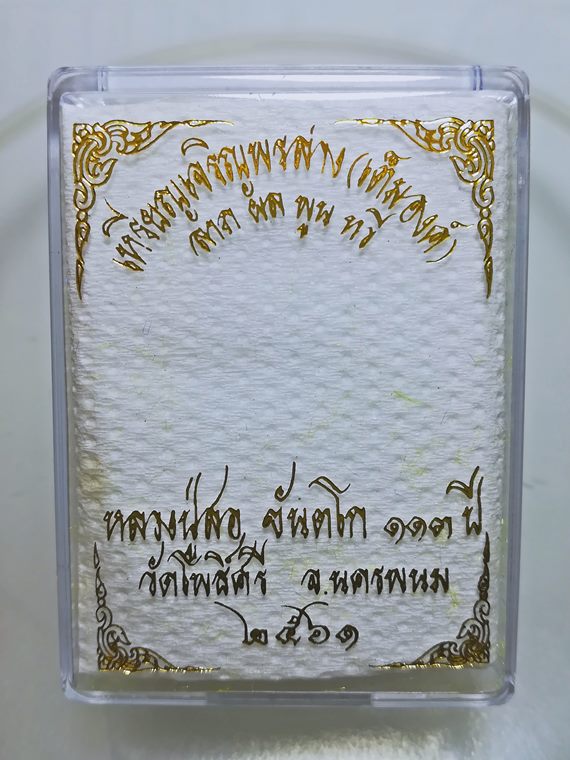 เหรียญเจริญพรล่าง (เต็มองค์)
ลาภ ผล พูน ทวี
หลวงปู่สอ ขันตโก ๑๑๓ ปี
วัดโพธิ์ศรี จ.นครพนม
๒๕๖๑